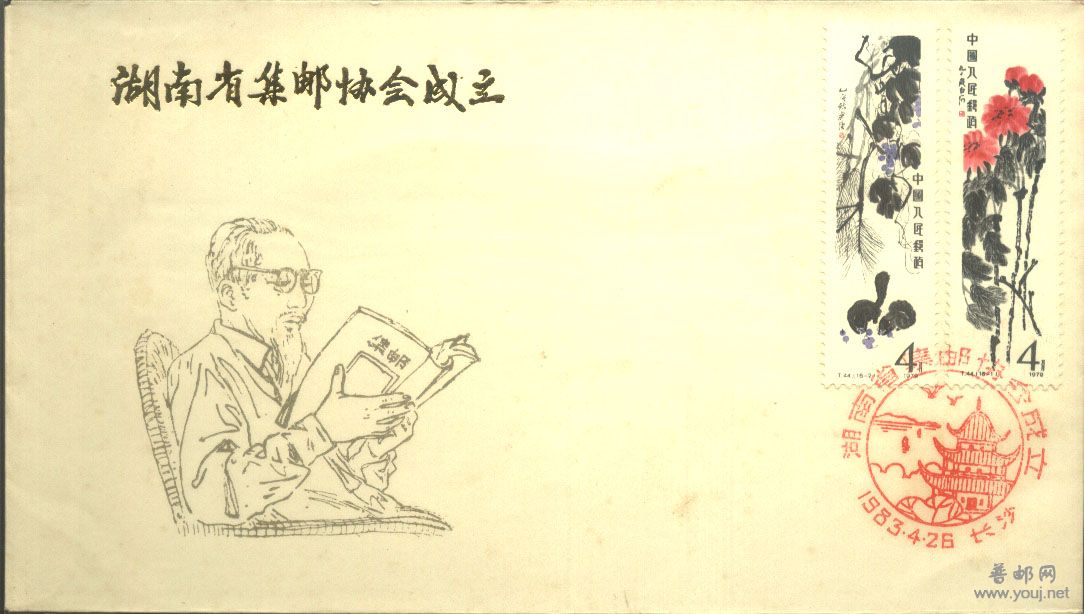 湖南省集邮协会成立
中國人民郵政
4分
T.44.(16-2)
1979
中國人民郵政
4分
T.44.(16-1)
1979
集邮
湖南省集邮协会成立
1983.4.26 长沙
普邮网
www.youj.net